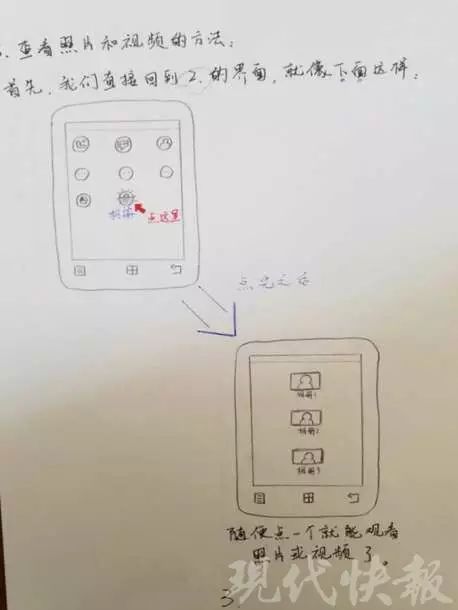 查看照片和视频的方法：
首先，我们直接回到2.的界面，就像下面这样：
相册
点这里
点完之后
相册1
相册2
相册3
随便点一个就能观看
照片或视频了。
3
现代快報